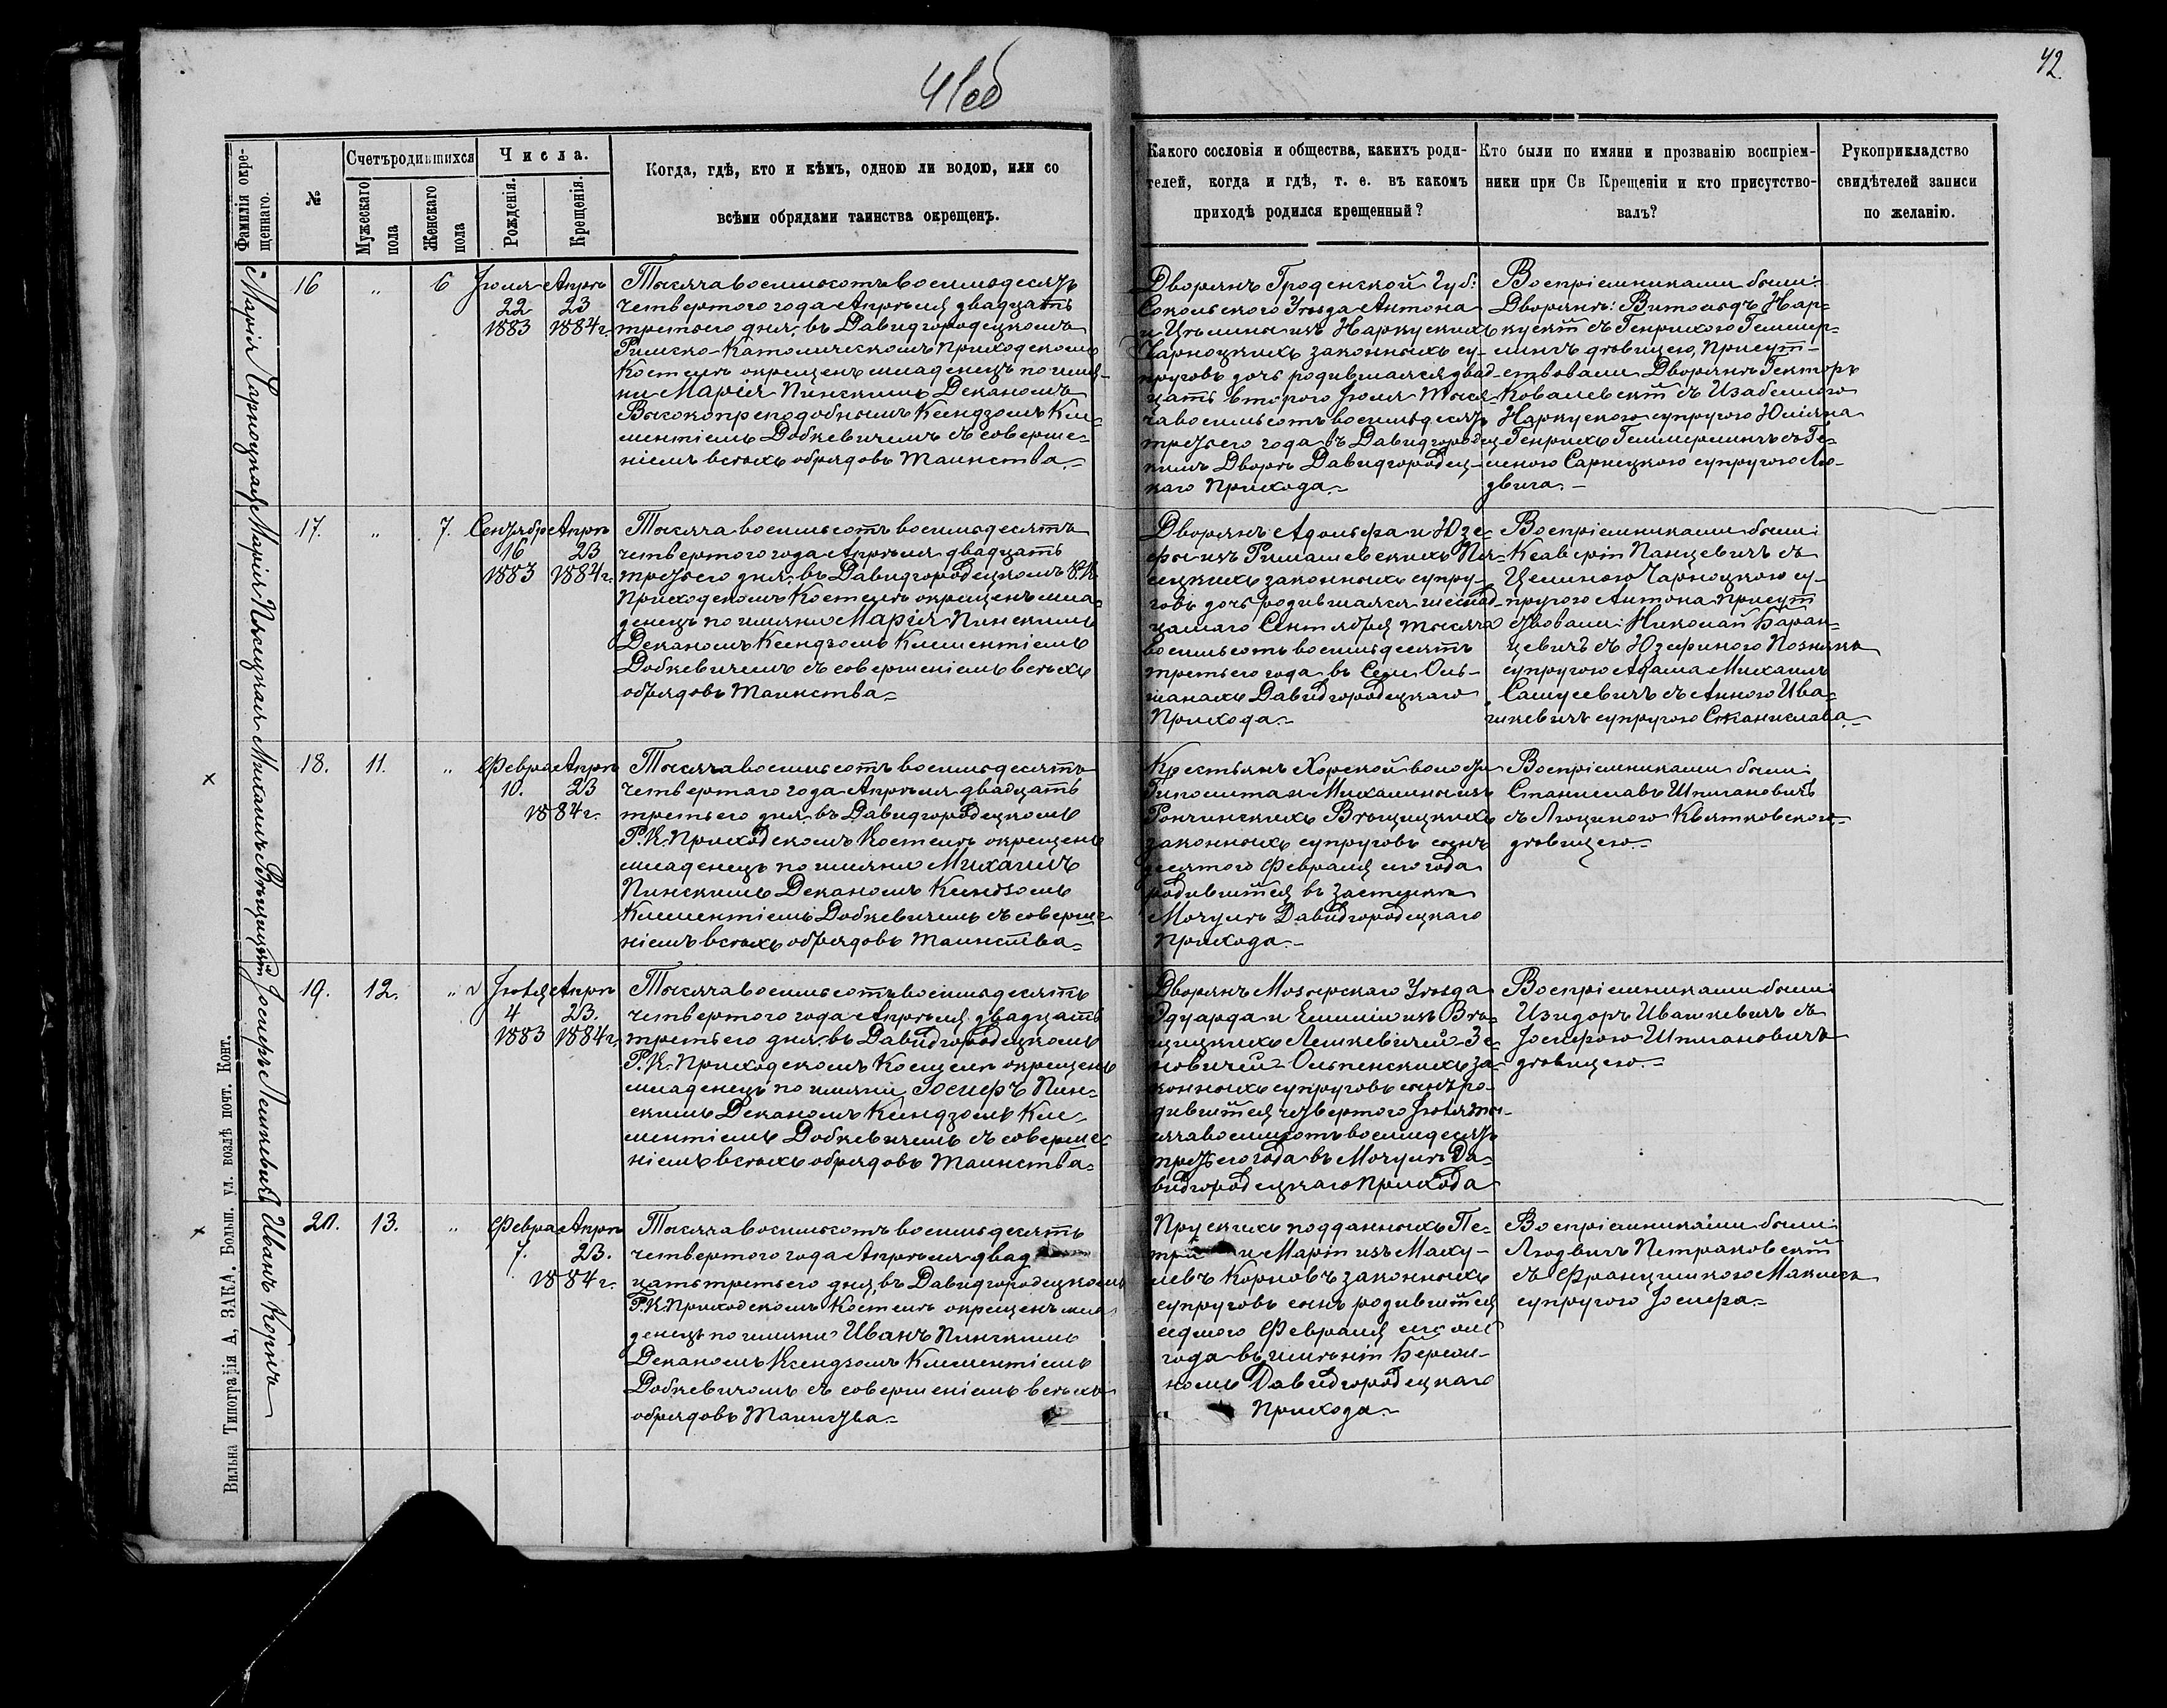 41об
42
Фамилія окре-
щеннаго.
№
Счетъ родившихся
Мужескаго
пола
Женскаго
пола
Числа.
Рожденія.
Крещенія.
Когда, гдѣ, кто и кѣмъ, одною ли водою, или со
всѣми обрядами таинства окрещенъ.
Какого сословія и общества, какихъ роди-
телей, когда и гдѣ, т. е. въ какомъ
приходѣ родился крещенный?
Кто были по имяни и прозванію воспріем-
ники при Св Крещеніи и кто присутство-
валъ?
Рукоприкладство
свидѣтелей записи
по желанію.
Марія Чарноцкая
16
"
6
Іюля
22
1883
Апрѣ
23
1884 г.
Тысяча восемьсотъ восемьдесятъ
четвертого года Апрѣля двадцать
третьего дня, въ Давидгородецкомъ
Римско-Католическомъ Приходскомъ
Костелѣ окрещенъ младенецъ по имя-
ни Марія Пинскимъ Деканомъ
Высокопреподобнымъ Ксендзомъ Кли-
ментіемъ Добкевичемъ съ соверше-
ніемъ всѣхъ обрядовъ Таинства.=
Дворянъ Гроденской Губ:
Сокольского Уѣзда Антона
и Цѣлины изъ Наркускихъ
Чарноцкихъ законныхъ су-
пруговъ дочь родившаяся двад
цать второго Іюля Тыся
ча восемьсотъ восемьдесятъ
третьего года въ Давидгородец
комъ Дворѣ Давидгородец-
каго Прихода.=
Воспріемниками были:
Дворянѣ: Витольдъ Нар-
кускій съ Генрихою Геммер-
лингъ дѣвицею, Присут-
ствовали Дворянѣ Гекторъ
Ковалевскій съ Изабеллою
Наркускою супругою Юліяна
Генрихъ Геммерлингъ съ Ге-
леною Сарнецкою супругою Лю-
двига.-
Марія Плсецкая
17.
"
7.
Сентябр
16
1883
Апрѣ
23
1884 г.
Тысяча восемьсотъ восемьдесятъ
четвертого года Апрѣля двадцать
третьего дня, въ Давидгородецкомъ Р.К.
Приходскомъ Костелѣ окрещенъ мла-
денецъ по имяни Марія Пинскимъ
Деканомъ Ксендзомъ Климентіемъ
Добкевичемъ съ совершеніемъ всѣхъ
обрядовъ Таинства=
Дворянъ Адольфа и Юзе-
фы изъ Римашевскихъ Пля-
сецкихъ законныхъ супру-
говъ дочь родившаяся шестнад
цатаго Сентября тысяча
восемьсотъ восемьдесятъ
третьего года въ Селѣ Оль-
шанахъ Давидгородецкаго
Прихода.=
Воспріемниками были:
Ксаверій Панцевичъ съ
Целиною Чарноцкою су-
пругою Антона присут
ствовали: Николай Баран-
цевичъ съ Юзефиною Позняк
супругою Адама Михаилъ
Сацусевичъ съ Анною Ива-
шкевичъ супругою Станислава.=
Михаилъ Вѣщицкій
18.
11.
"
Февра
10.
Апрѣ
23
1884 г.
Тысяча восемьсотъ восемьдесятъ
четвертаго года Апрѣля двадцать
третьего дня, въ Давидгородецкомъ
Р.К. Приходскомъ Костелѣ окрещенъ
младенецъ по имяни Михаилъ
Пинскимъ Деканомъ Ксендзомъ
Климентіемъ Добкевичемъ съ соверше-
ніемъ всѣхъ обрядовъ Таинства=
Крестьянъ Хорской волости
Гиполита и Михалины изъ
Рончинскихъ Вѣщицкихъ
законныхъ супруговъ сынъ
десятого Февраля сего года
родившійся въ застѣнкѣ
Мочулѣ Давидгородецкаго
Прихода.-
Воспріемниками были:
Станиславъ Шпилановичъ
съ Люциною Квятковскою
дѣвицею.-
Іосифъ Лешкевичъ
19.
12.
"
Іюля
4
1883
Апрѣ
23.
1884 г.
Тысяча восемьсотъ восемьдесятъ
четвертого года Апрѣля двадцать
третьего дня, въ Давидгородецкомъ
Р.К. Приходскомъ Костелѣ окрещенъ
младенецъ по имяни Іосифъ Пин-
скимъ Деканомъ Ксендзомъ Кли-
ментіемъ Добкевичемъ съ соверше-
ніемъ всѣхъ обрядовъ Таинства=
Дворянъ Мозырскаго Уѣзда
Эдуарда и Емиліи изъ Вѣ-
щицкихъ Лешкевичей-Зе-
новичей-Ольпенскихъ за-
конныхъ супруговъ сынъ ро-
дившійся четвертого Іюля ты-
сяча восемьсотъ восемьдесятъ
третьего года въ Мочулѣ Да-
видгородецкаго Прихода
Воспріемниками были:
Изидоръ Ивашкевичъ съ
Іосифою Шпилановичъ
дѣвицею.-
Иванъ Корнъ
20.
13.
"
Февра
7.
Апрѣ
23.
1884 г.
Тысяча восемьсотъ восемьдесятъ
четвертого года Апрѣля двад
цать третьего дня, въ Давидгородецкомъ
Р.К. Приходскомъ Костелѣ окрещенъ мла
денецъ по имяни Иванъ Пинскимъ
Деканомъ Ксендзомъ Климентіемъ
Добкевичемъ съ совершеніемъ всѣхъ
обрядовъ Таинства=
Прускихъ подданныхъ Пе-
тра и Маріи изъ Маку-
левъ Корновъ законныхъ
супруговъ сынъ родившійся
седмого Февраля сего
года въ имѣніи Береж-
номъ Давидгородецкаго
Прихода.-
Воспріемниками были:
Людвигъ Петраковскій
съ Францишкою Макулев
супругою Іосифа.-
Вильна Типографія А. ЗАКА. Больш. ул. возлѣ почт. Конт.